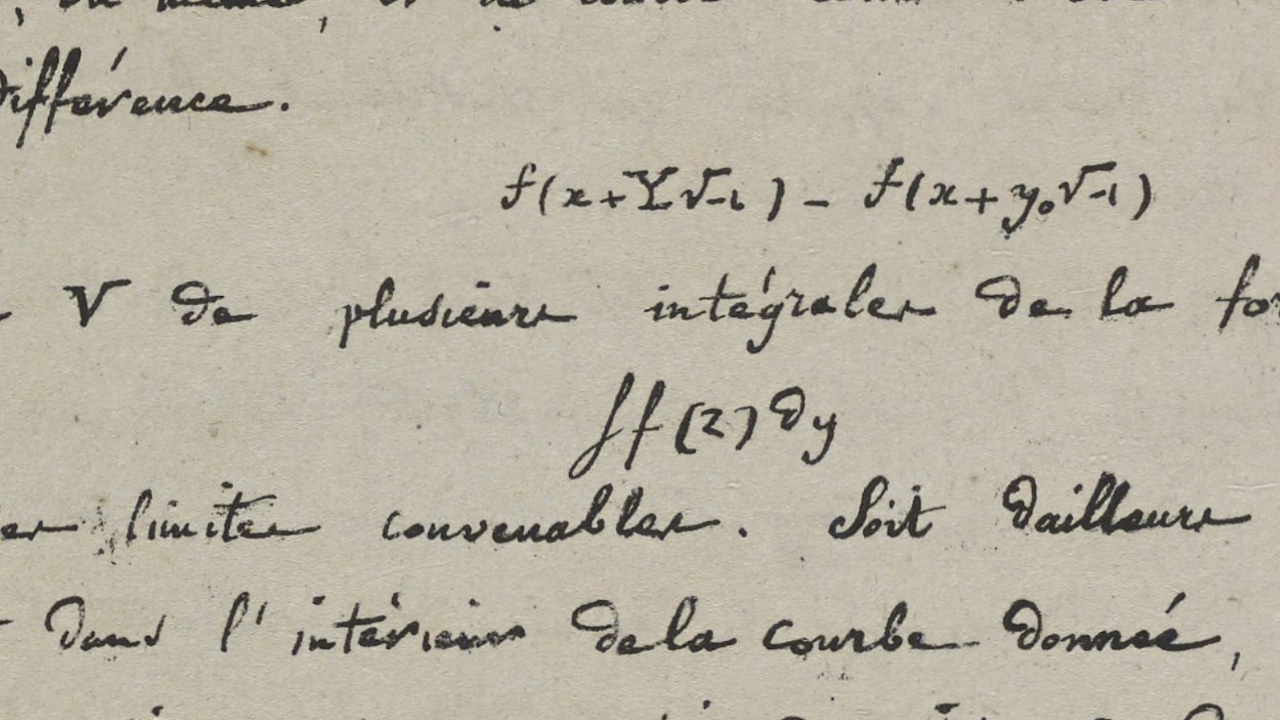 différence.
f(x+Y√-1) - f(x+y₀√-1)
V de plusieurs intégrales de la for
∫f(z)dy
limites convenables. Soit dailleurs
dans l'intérieur de la courbe donneé,